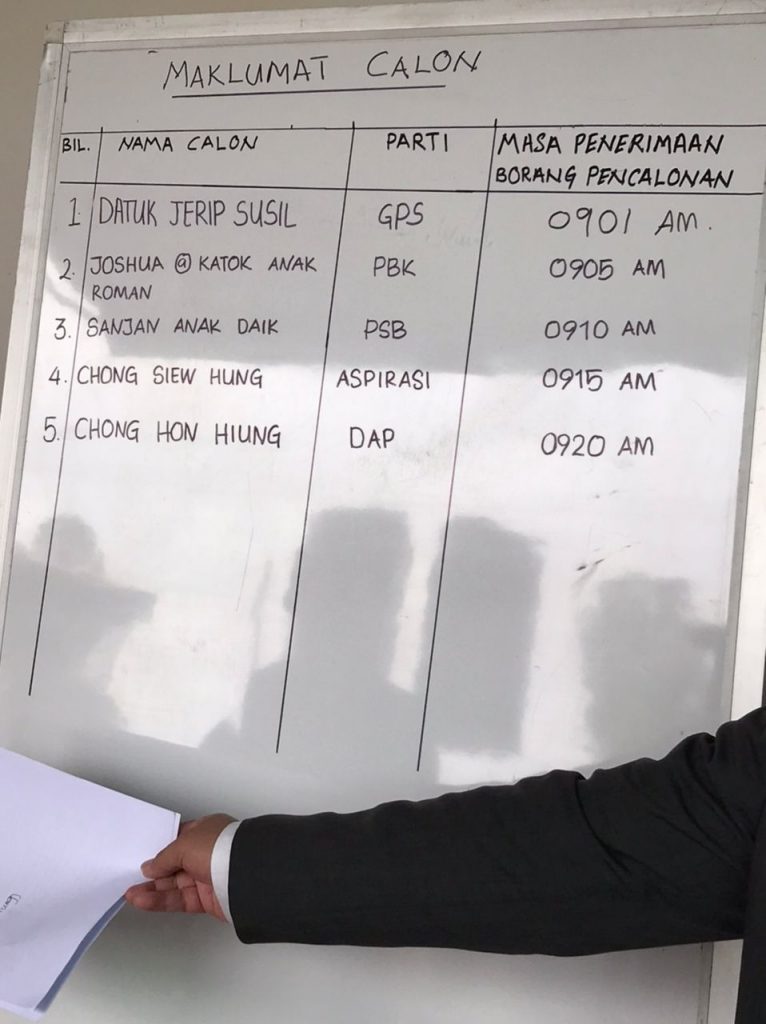 MAKLUMAT CALON
BIL. NAMA CALON PARTI MASA PENERIMAAN BORANG PENCALONAN
1. DATUK JERIP SUSIL GPS 0901 AM.
2. JOSHUA @ KATOK ANAK ROMAN PBK 0905 AM
3. SANJAN ANAK DAIK PSB 0910 AM
4. CHONG SIEW HUNG ASPIRASI 0915 AM
5. CHONG HON HIUNG DAP 0920 AM